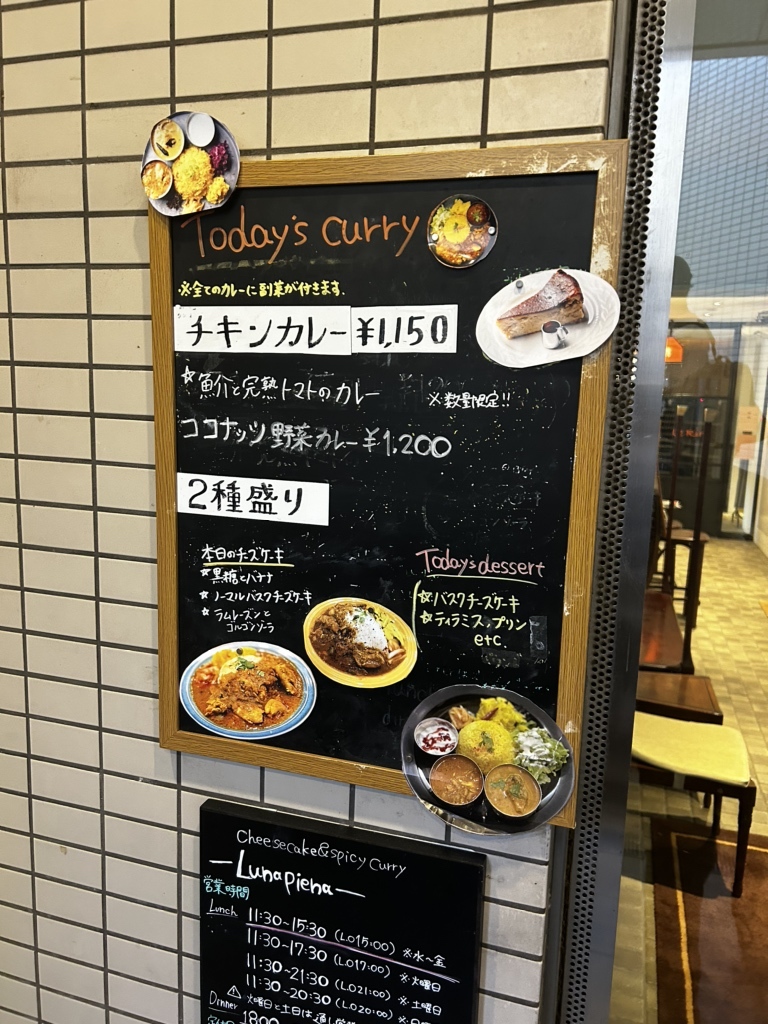 Today's curry
※全てのカレーに副菜が付きます.
チキンカレー ¥1,150
☆魚介と完熟トマトのカレー ※数量限定!!
ココナッツ野菜カレー ¥1,200
2種盛り
本日のチーズケーキ
☆黒糖とバナナ
☆ノーマルバスクチーズケーキ
☆ラムレーズンと
ゴルゴンゾーラ
Today's dessert
☆バスクチーズケーキ
☆ティラミス、プリン
etc
Cheesecake&spicy curry
—Lunapiena—
営業時間
Lunch 11:30~15:30 (L.O15:00) ※水~金
11:30~17:30 (L.O17:00) ※火曜日
11:30~21:30 (L.O21:00) ※土曜日
11:30~20:30 (L.O20:00)
⚠火曜日と土日は通し営業
Dinner 18:00